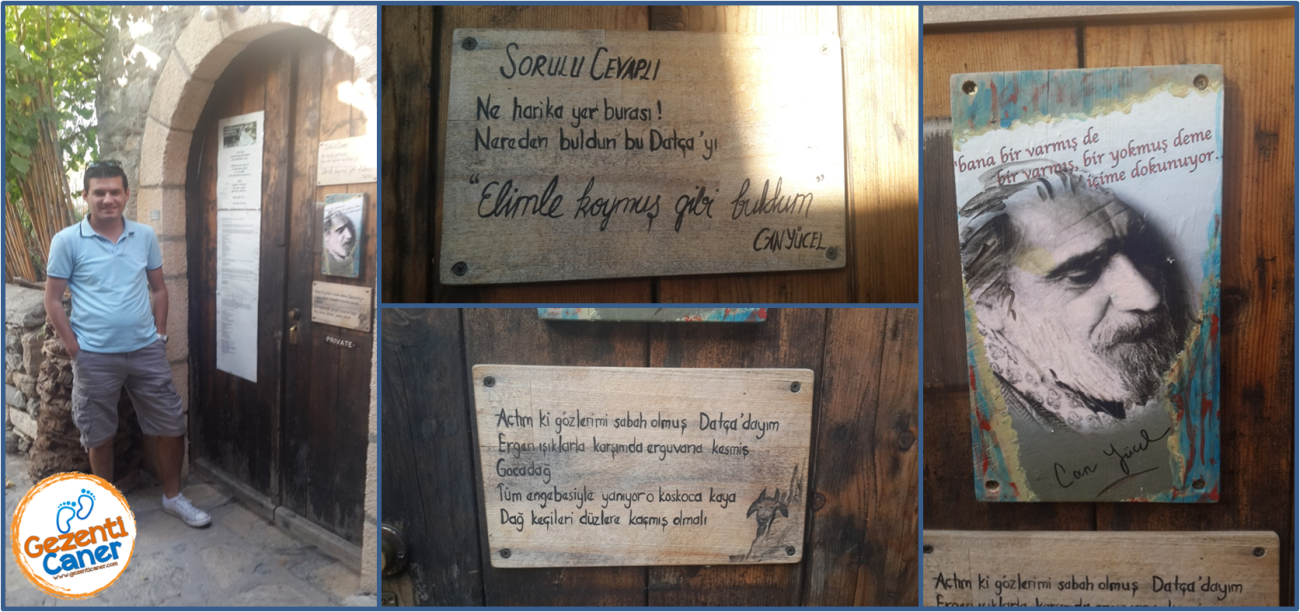 PRIVATE-
Gezenti
Caner
www.gezenticaner.com
SORULU CEVAPLI
Ne harika yer burası!
Nereden buldun bu Datça'yı
"Elimle koymuş gibi buldum"
CAN YÜCEL
Açtım ki gözlerimi sabah olmuş Datça'dayım
Ergen ışıklarla karşımda erguvana kesmiş
Gocadağ
Tüm engebesiyle yanıyor o koskoca kaya
Dağ keçileri düzlere kaçmış olmalı
"bana bir varmış de
bir varmış, bir yokmuş deme
içime dokunuyor...
Can Yücel
Açtım ki gözlerimi sabah olmuş Datça'dayım